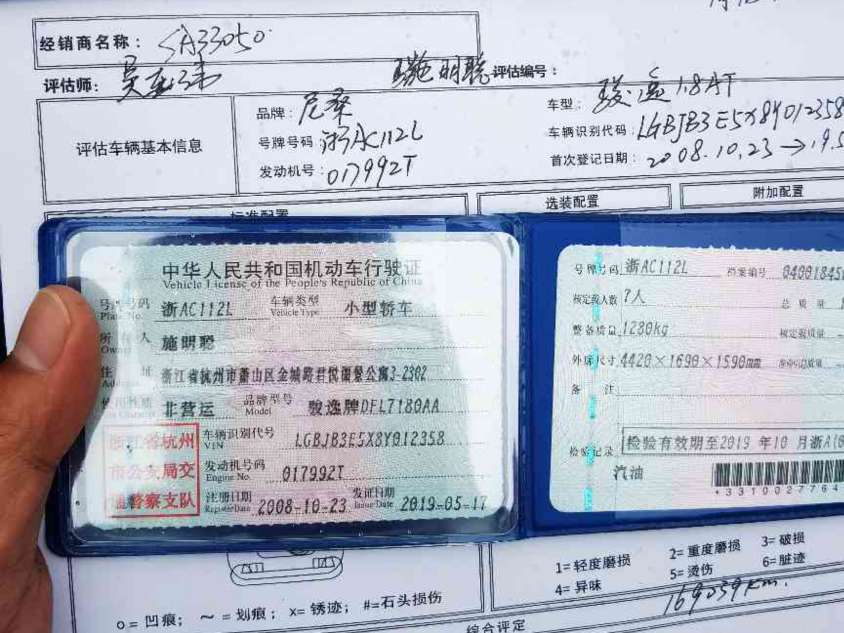 经销商名称： SA33050
评估师：
评估编号：
评估车辆基本信息
品牌：尼桑
号牌号码：浙AC112L
发动机号：017992T
车型：骏逸1.8AT
车辆识别代码：LGBJB3E5X8Y012358
首次登记日期：2008.10.23→19.5
标准配置
选装配置
附加配置
中华人民共和国机动车行驶证
Vehicle License of the People's Republic of China
号牌号码 浙AC112L 车辆类型 小型轿车
Plate No. Vehicle Type
所有人 施明聪
Owner
住址 浙江省杭州市萧山区金城路君悦 公寓3-2302
Address
使用性质 非营运 品牌型号 骏逸牌DFL7180AA
Use Character Model
浙江省杭州
市公安局交
通警察支队
车辆识别代号 LGBJB3E5X8Y012358
VIN
发动机号码 017992T
Engine No.
注册日期 2008-10-23 发证日期 2019-05-17
Register Date Issue Date
号牌号码 浙AC112L 档案编号 04001845
核定载人数 7人 总质量
整备质量 1280kg 核定载质量
外廓尺寸 4420×1690×1590mm 准牵引总质量
备注
检验记录 检验有效期至2019 年10 月浙A
汽油
+3310027764
o=凹痕； ～=划痕； x=锈迹； #=石头损伤
1=轻度磨损 2=重度磨损 3=破损
4=异味 5=烫伤 6=脏迹
169039km.
综合评定